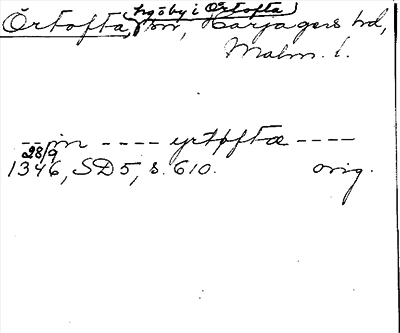 Örtofta, (hg o by i Örtofta) sn, Harjagers hd,
Malm. l.
-- in ---- yrtofta ----
28/9
1346, SD 5, s. 610. orig.